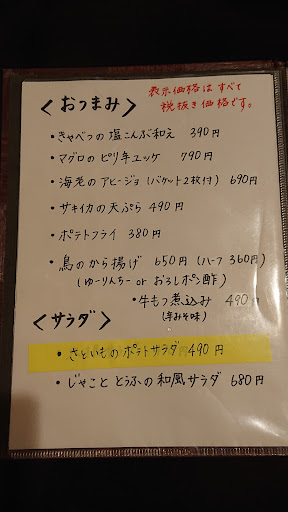 表示価格はすべて
税抜き価格です。
<おつまみ>
・きゃべつの塩こんぶ和え 390円
・マグロのピリ辛ユッケ 790円
・海老のアヒージョ(バケット2枚付) 690円
・サキイカの天ぷら 490円
・ポテトフライ 380円
・鳥のから揚げ 650円 (ハーフ 360円)
(ゆーりんちー or おろしポン酢)
・牛もつ煮込み 490円
(辛みそ味)
<サラダ>
・さといものポテトサラダ 490円
・じゃこととうふの和風サラダ 680円